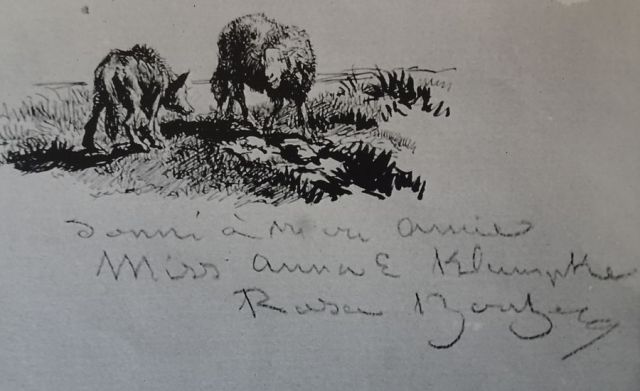 donné à amie
Miss Anna E Klumpke
Rosa Bonheur